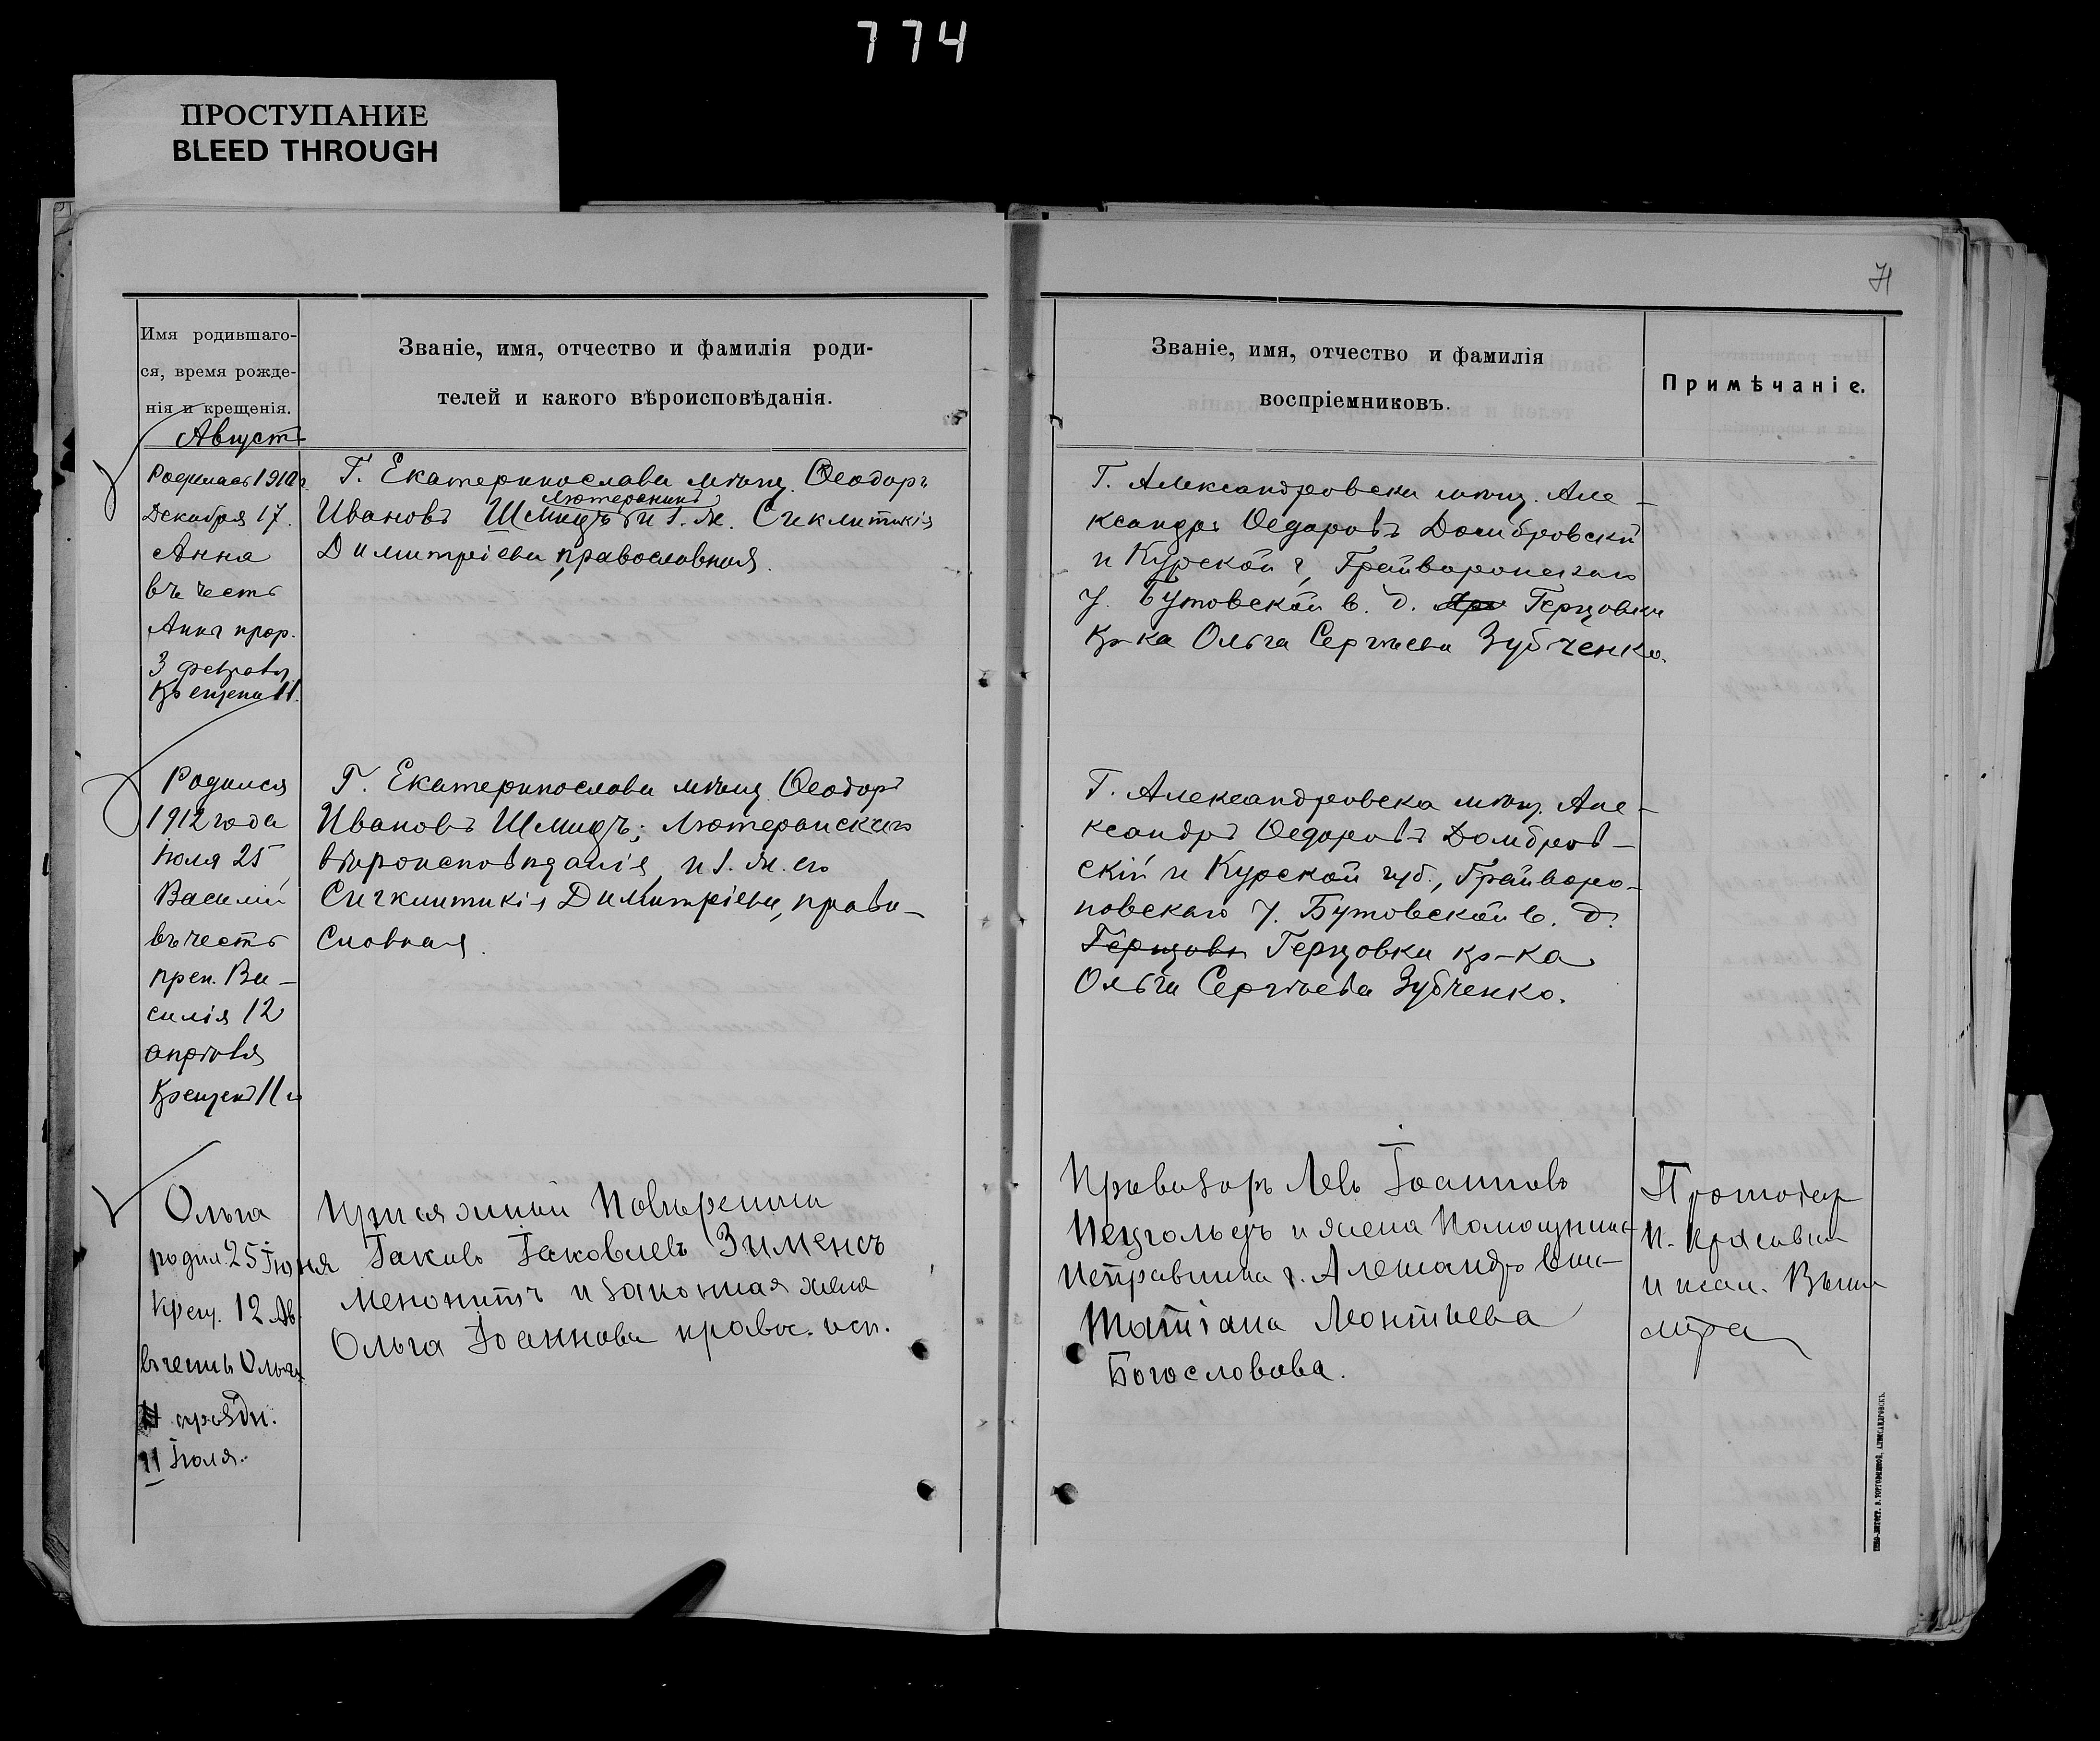 774
ПРОСТУПАНИЕ
BLEED THROUGH
71
Имя родившаго-
ся, время рожде-
нія и крещенія.
Званіе, имя, отчество и фамилія роди-
телей и какого вѣроисповѣданія.
Званіе, имя, отчество и фамилія
воспріемниковъ.
Примѣчаніе.
Августъ
Родилась 1910 г.
Декабря 17.
Анна
въ честь
Анны прор.
3 февраля
Крещена 11.
Г. Екатеринослава мѣщ. Ѳеодоръ
лютеранинъ
Ивановъ Шмидтъ и з. ж. Сигклитикія
Димитріева, православная.
Г. Александровска мѣщ. Але-
ксандръ Ѳедоровъ Домбровскій
и Курской г., Грайворонскаго
у. Бутовской в. д. Герцовки
кр-ка Ольга Сергѣева Зубченко.
Родился
1912 года
Іюля 25
Василій
въ честь
преп. Ва-
силія 12
апрѣля
Крещенъ 11 го
Г. Екатеринослава мѣщ. Ѳеодоръ
Ивановъ Шмидъ; Лютеранскаго
вѣроисповѣданія, и з. ж. его
Сигклитикія Димитріева, право-
славная.
Г. Александровска мѣщ. Але-
ксандръ Ѳедоровъ Домбров-
скій и Курской губ., Грайворо-
новскаго у. Бутовской в. д.
Герцовк Герцовки кр-ка
Ольга Сергѣева Зубченко.
Ольга
родил. 25 Іюня
крещ. 12 Ав.
въ честь Ольги
праздн.
11 Іюля.
Присяжный Повѣренный
Іаковъ Іаковлевъ Зименсъ
Менонитъ и законная жена
Ольга Іоаннова правос. исп.
Провизоръ Левъ Іоанновъ
и жена Помощника
Исправника г. Александровска
Татіана Леонтьева
Богословова.
Протоіер.
П.
и псал.
ТИПО-ЛИТОГР. В. ТОРГОВИЦКОЙ, АЛЕКСАНДРОВСКЪ.